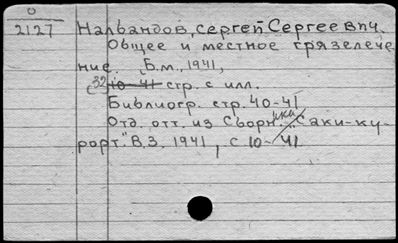 О
2127 Налбандов, Сергей Сергеевич.
Общее и местное грязелече
ние. Б.м., 1941,
(32) 10-41 стр. с илл.
Библиогр. стр. 40-41
Отд. отт. из Сборн. "Саки-ку-
рорт". В.3. 1941, с 10-41